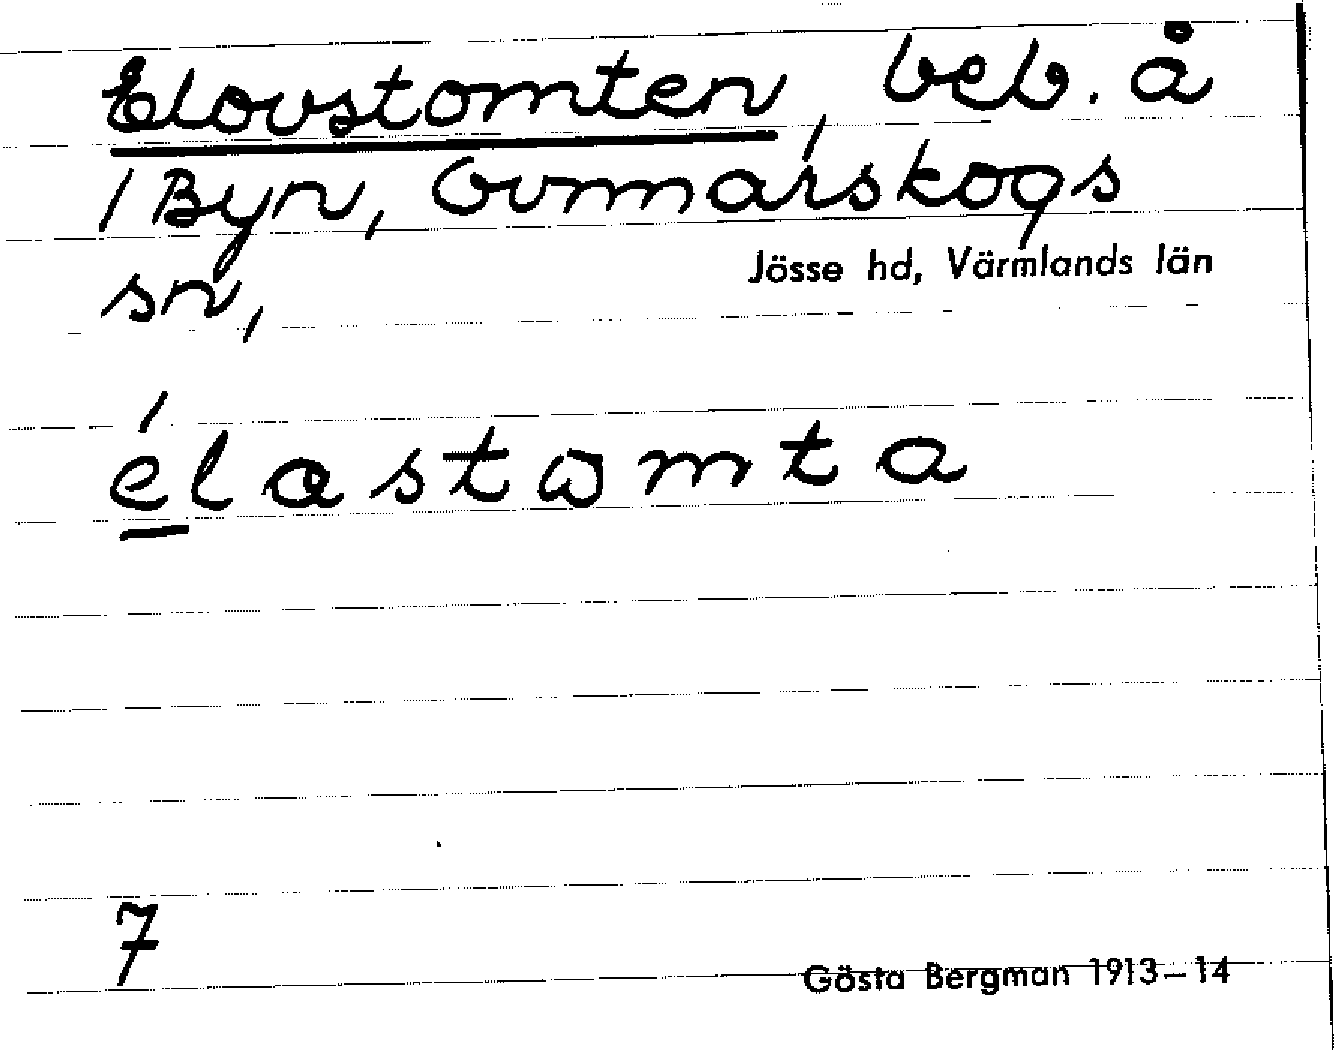 Elovstomten, beb. å
/ Byn, Gunnarskogs
Jösse hd, Värmlands län
sn,
élastomta
7
Gösta Bergman 1913–14